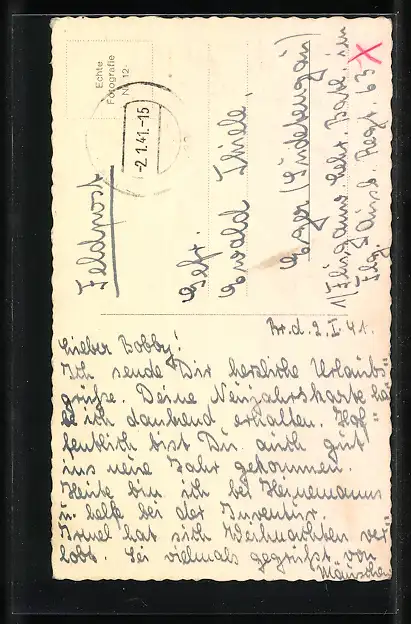 Echte
Fotografie
Nr. 12
-2.1.41.-15
Feldpost
Gefr.
Ewald Thiele.
Eger (Sudetengau)
1/Fluganw. Batl. im
Flg. Ausb. Regt. 63
X
Br.d. 2.I.41.
Lieber Bobby!
Ich sende Dir herzliche Urlaubs=
grüsse. Deine Neujahrskarte ha=
be ich dankend erhalten. Hof=
fentlich bist Du auch gut
ins neue Jahr gekommen.
Heute bin ich bei Heinemanns
u. helfe bei der Inventur.
Irmel hat sich Weihnachten ver=
lobt. Sei vielmals gegrüsst von
Mäuschen